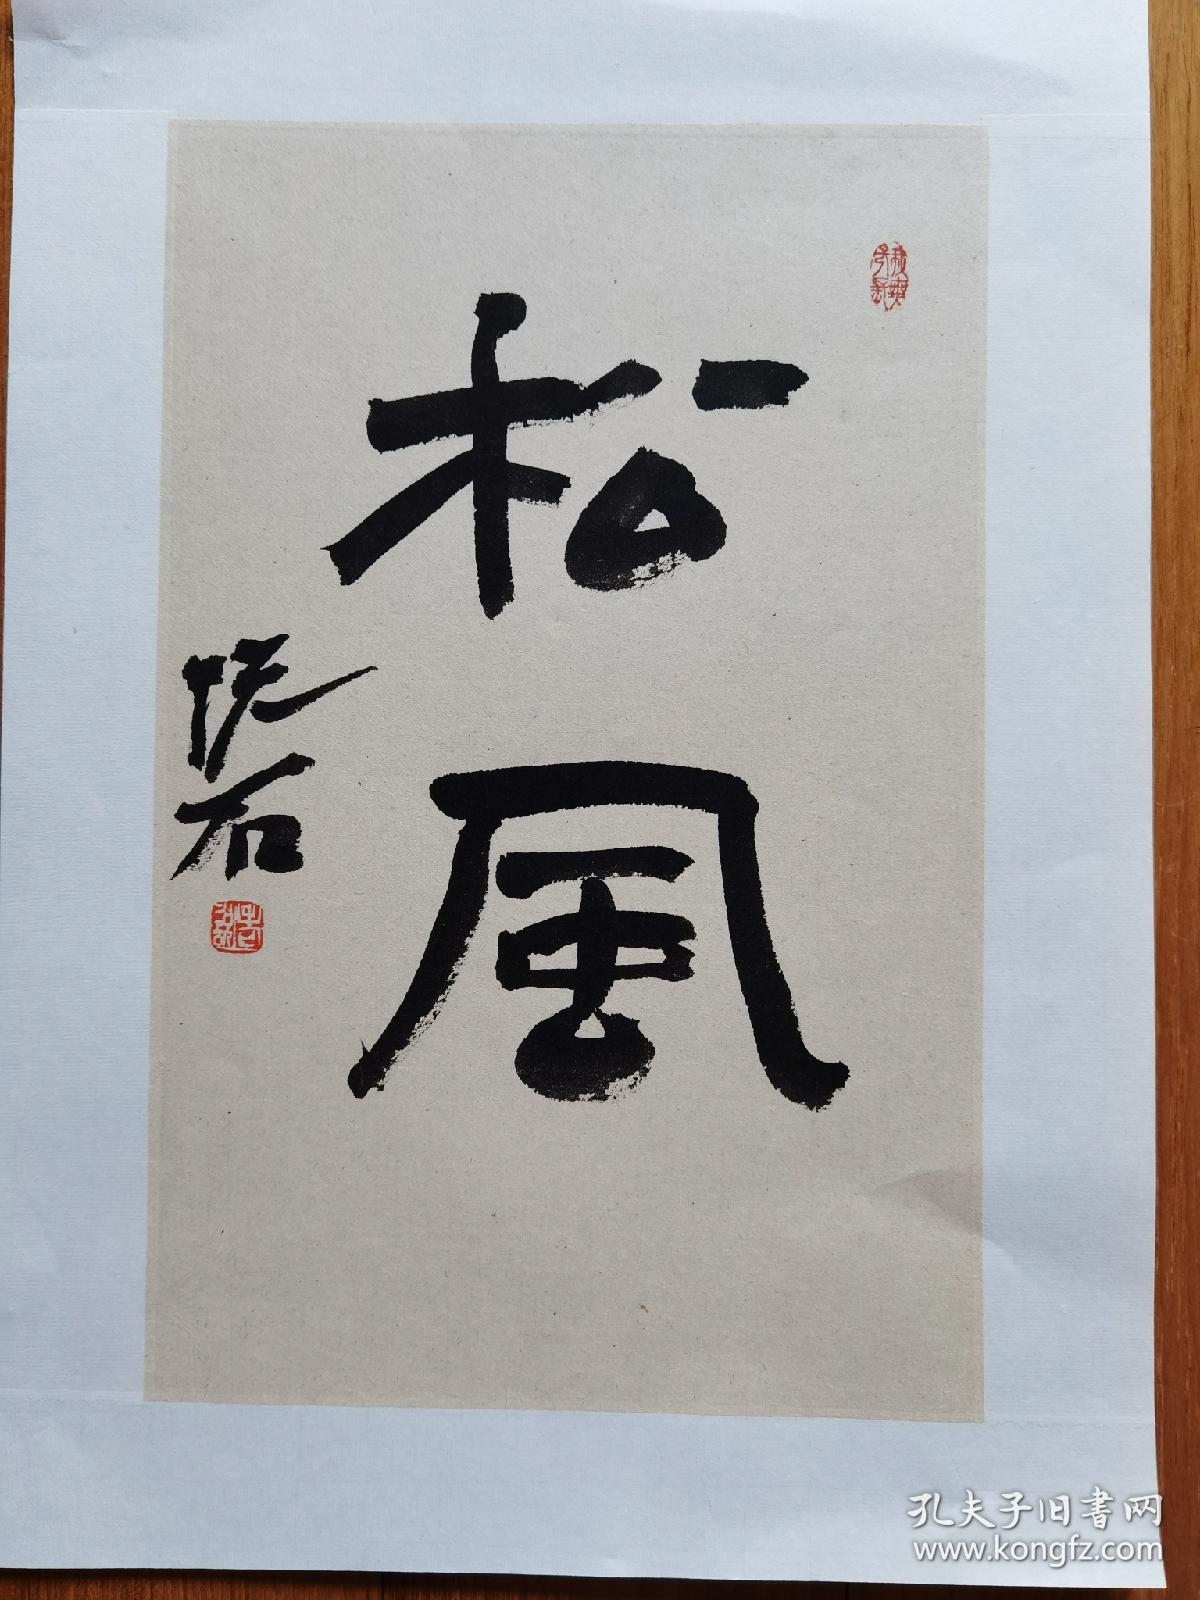 松風
石
孔夫子旧书网
www.kongfz.com